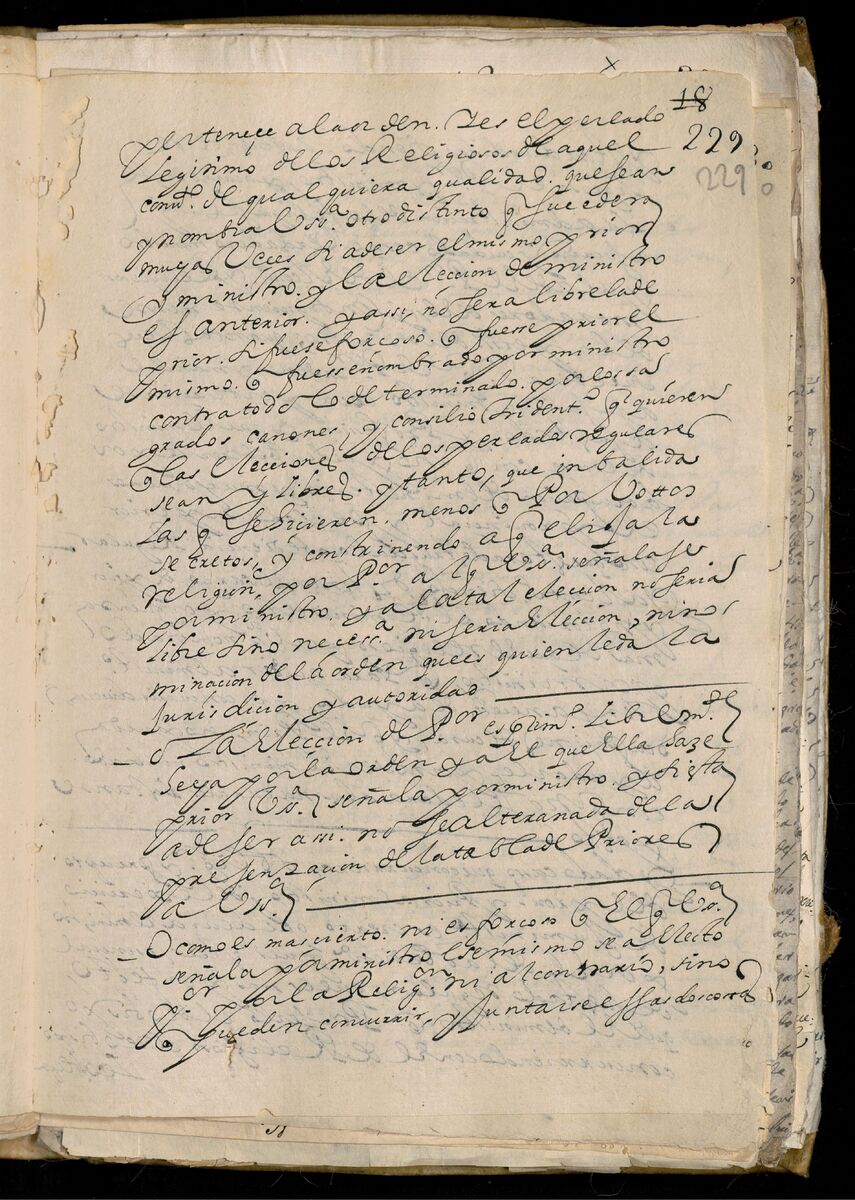 18
229
229
perteneçe a la orden. Y es el perlado
legitimo de los Religiosos de aquel
conuto. de qual quiera qualidad. que sean
y nombra Vssa. otro distinto q sucedera
muças veces si a de ser el mismo prior
y ministro. y la eleccion de ministro
es anterior. y assi, no sera libre la de
prior. si fuese forçoso. q fuesse prior el
mismo. q fuesse nombrado por ministro
contra todo lo determinado. por los sa
grados canones, y consilio Tridento. q quieren
q las elecciones de los perlados regulares
sean libres. y tanto, que inbalida
las q se hicieren. menos q Por Vottos
secretos, y constrinendo a q elija la
religion, por Por al q Vssa. señalase
por ministro. ya la tal eleccion no seria
libre sino necessa. ni seria Eleccion, ni no
minacion de la orden que es quien le da la
Jurisdicion y autoridad
o La Eleccion de Por es librem.te
seya por la orden y al que Ella haze
prior Vssa. señala por ministro. y si esta
a de ser assi. no se altera nada de la
presentacion de la tabla de Priores
a Vssa
O como es mas cierto. ni es forçoso q El q Vssa
señala por ministro ese mismo sea Electo
Por por la Religon ni al contrario, sino
q pueden concurrir, y juntarse essas dos cosas